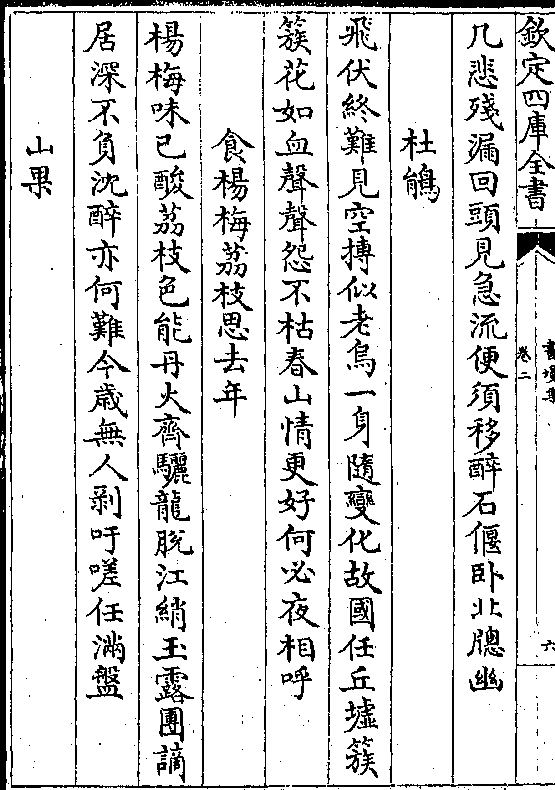 欽定四庫全書
卷二
六
几悲殘漏回頭見急流便須移醉石偃卧北牕幽
杜鵑
飛伏終難見空摶似老烏一身隨變化故國任丘墟簇
簇花如血聲聲怨不枯春山情更好何必夜相呼
食楊梅荔枝思去年
楊梅味已酸荔枝色能丹火齊驪龍脫江綃玉露團謫
居深不負沈醉亦何難今歳無人剥吁嗟任滿盤
山果